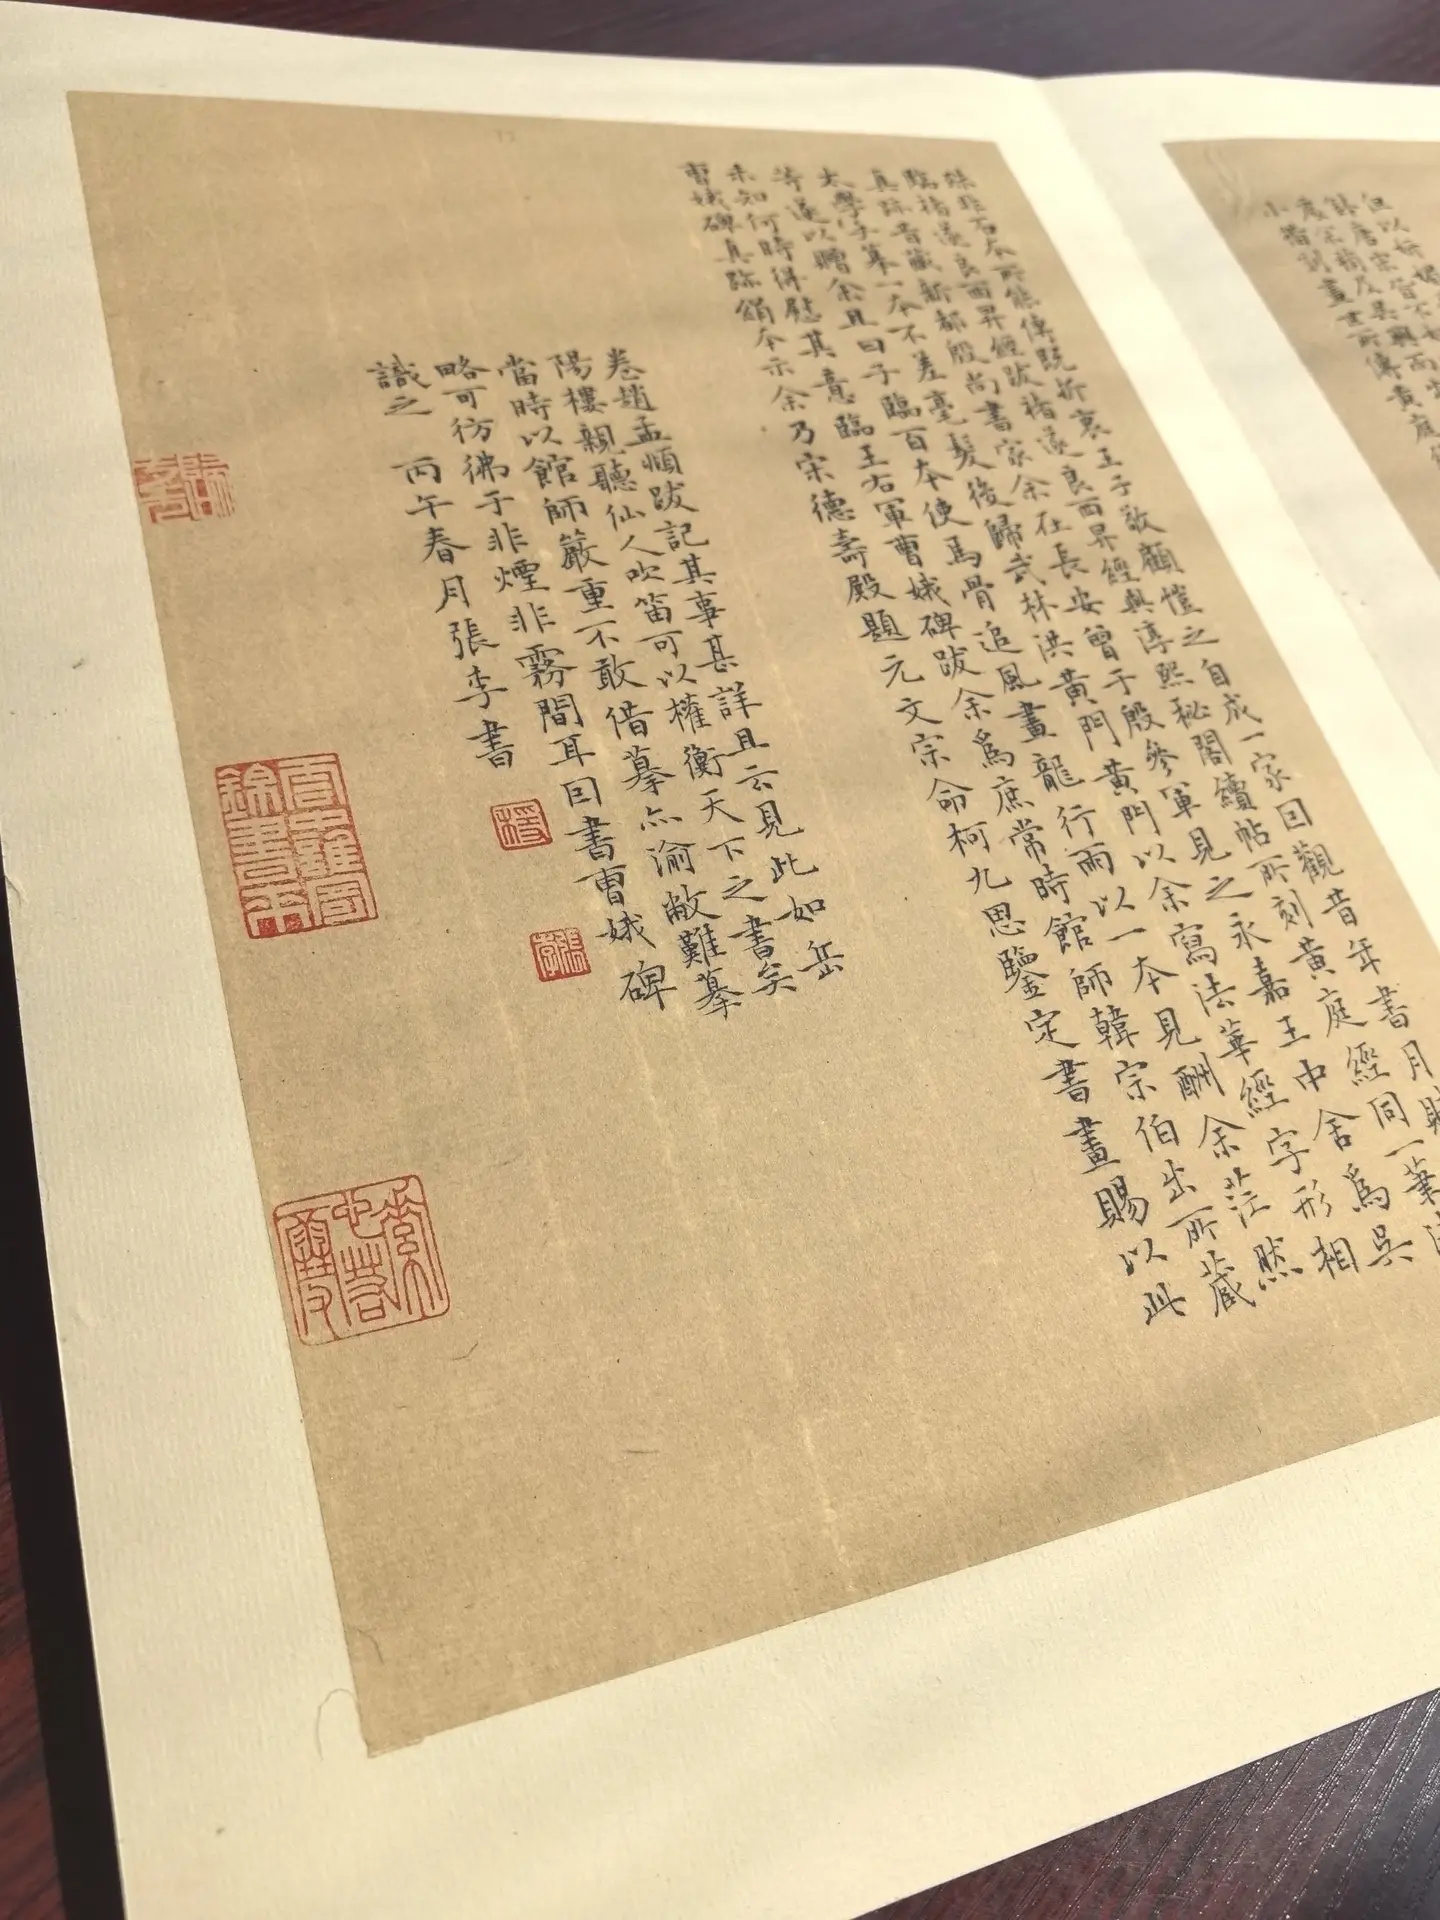 殊非石本所能傳既折衷王子敬顧愷之自成一家因觀昔年書月賦
臨褚遂良西昇經跋褚遂良西昇經與淳熙秘閣續帖所刻黃庭經同一筆法
真跡昔藏新都殷尚書家余在長安曾于殷參軍見之永嘉王中舍爲吳
太學字摹一本不差毫髮後歸武林洪黃門黃門以余寫法華經字形相
等遂以贈余且曰子臨百本使馬骨追風畫龍行雨以一本見酬余茫然
未知何時得慰其意臨王右軍曹娥碑跋余爲庶常時館師韓宗伯出所藏
曹娥碑真跡絹本示余乃宋德壽殿題元文宗命柯九思鑒定書畫賜以此
卷趙孟頫跋記其事甚詳且云見此如岳
陽樓親聽仙人吹笛可以權衡天下之書矣
當時以館師嚴重不敢借摹亦渝敝難摹
略可彷彿于非煙非霧間耳因書曹娥碑
識之 丙午春月張李書